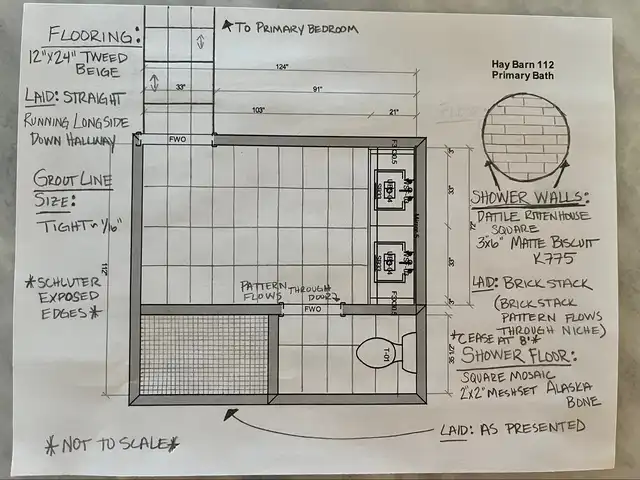 FLOORING:
12"x24" TWEED
BEIGE
LAID: STRAIGHT
RUNNING LONGSIDE
DOWN HALLWAY
GROUT LINE
SIZE:
TIGHT ~ 1/16"
*SCHLUTER
EXPOSED
EDGES*
*NOT TO SCALE*
TO PRIMARY BEDROOM
124"
33"
91"
103"
21"
FWO
112"
PATTERN THROUGH
FLOWS DOOR?
FWO
T-01
Hay Barn 112
Primary Bath
SHOWER WALLS:
DALTILE RITTENHOUSE
SQUARE
3x6" MATTE BISCUIT
K775
LAID: BRICKSTACK
(BRICKSTACK
PATTERN FLOWS
THROUGH NICHE)
*CEASE AT 8'*
SHOWER FLOOR:
SQUARE MOSAIC
2"x2" MESHSET ALASKA
BONE
LAID: AS PRESENTED